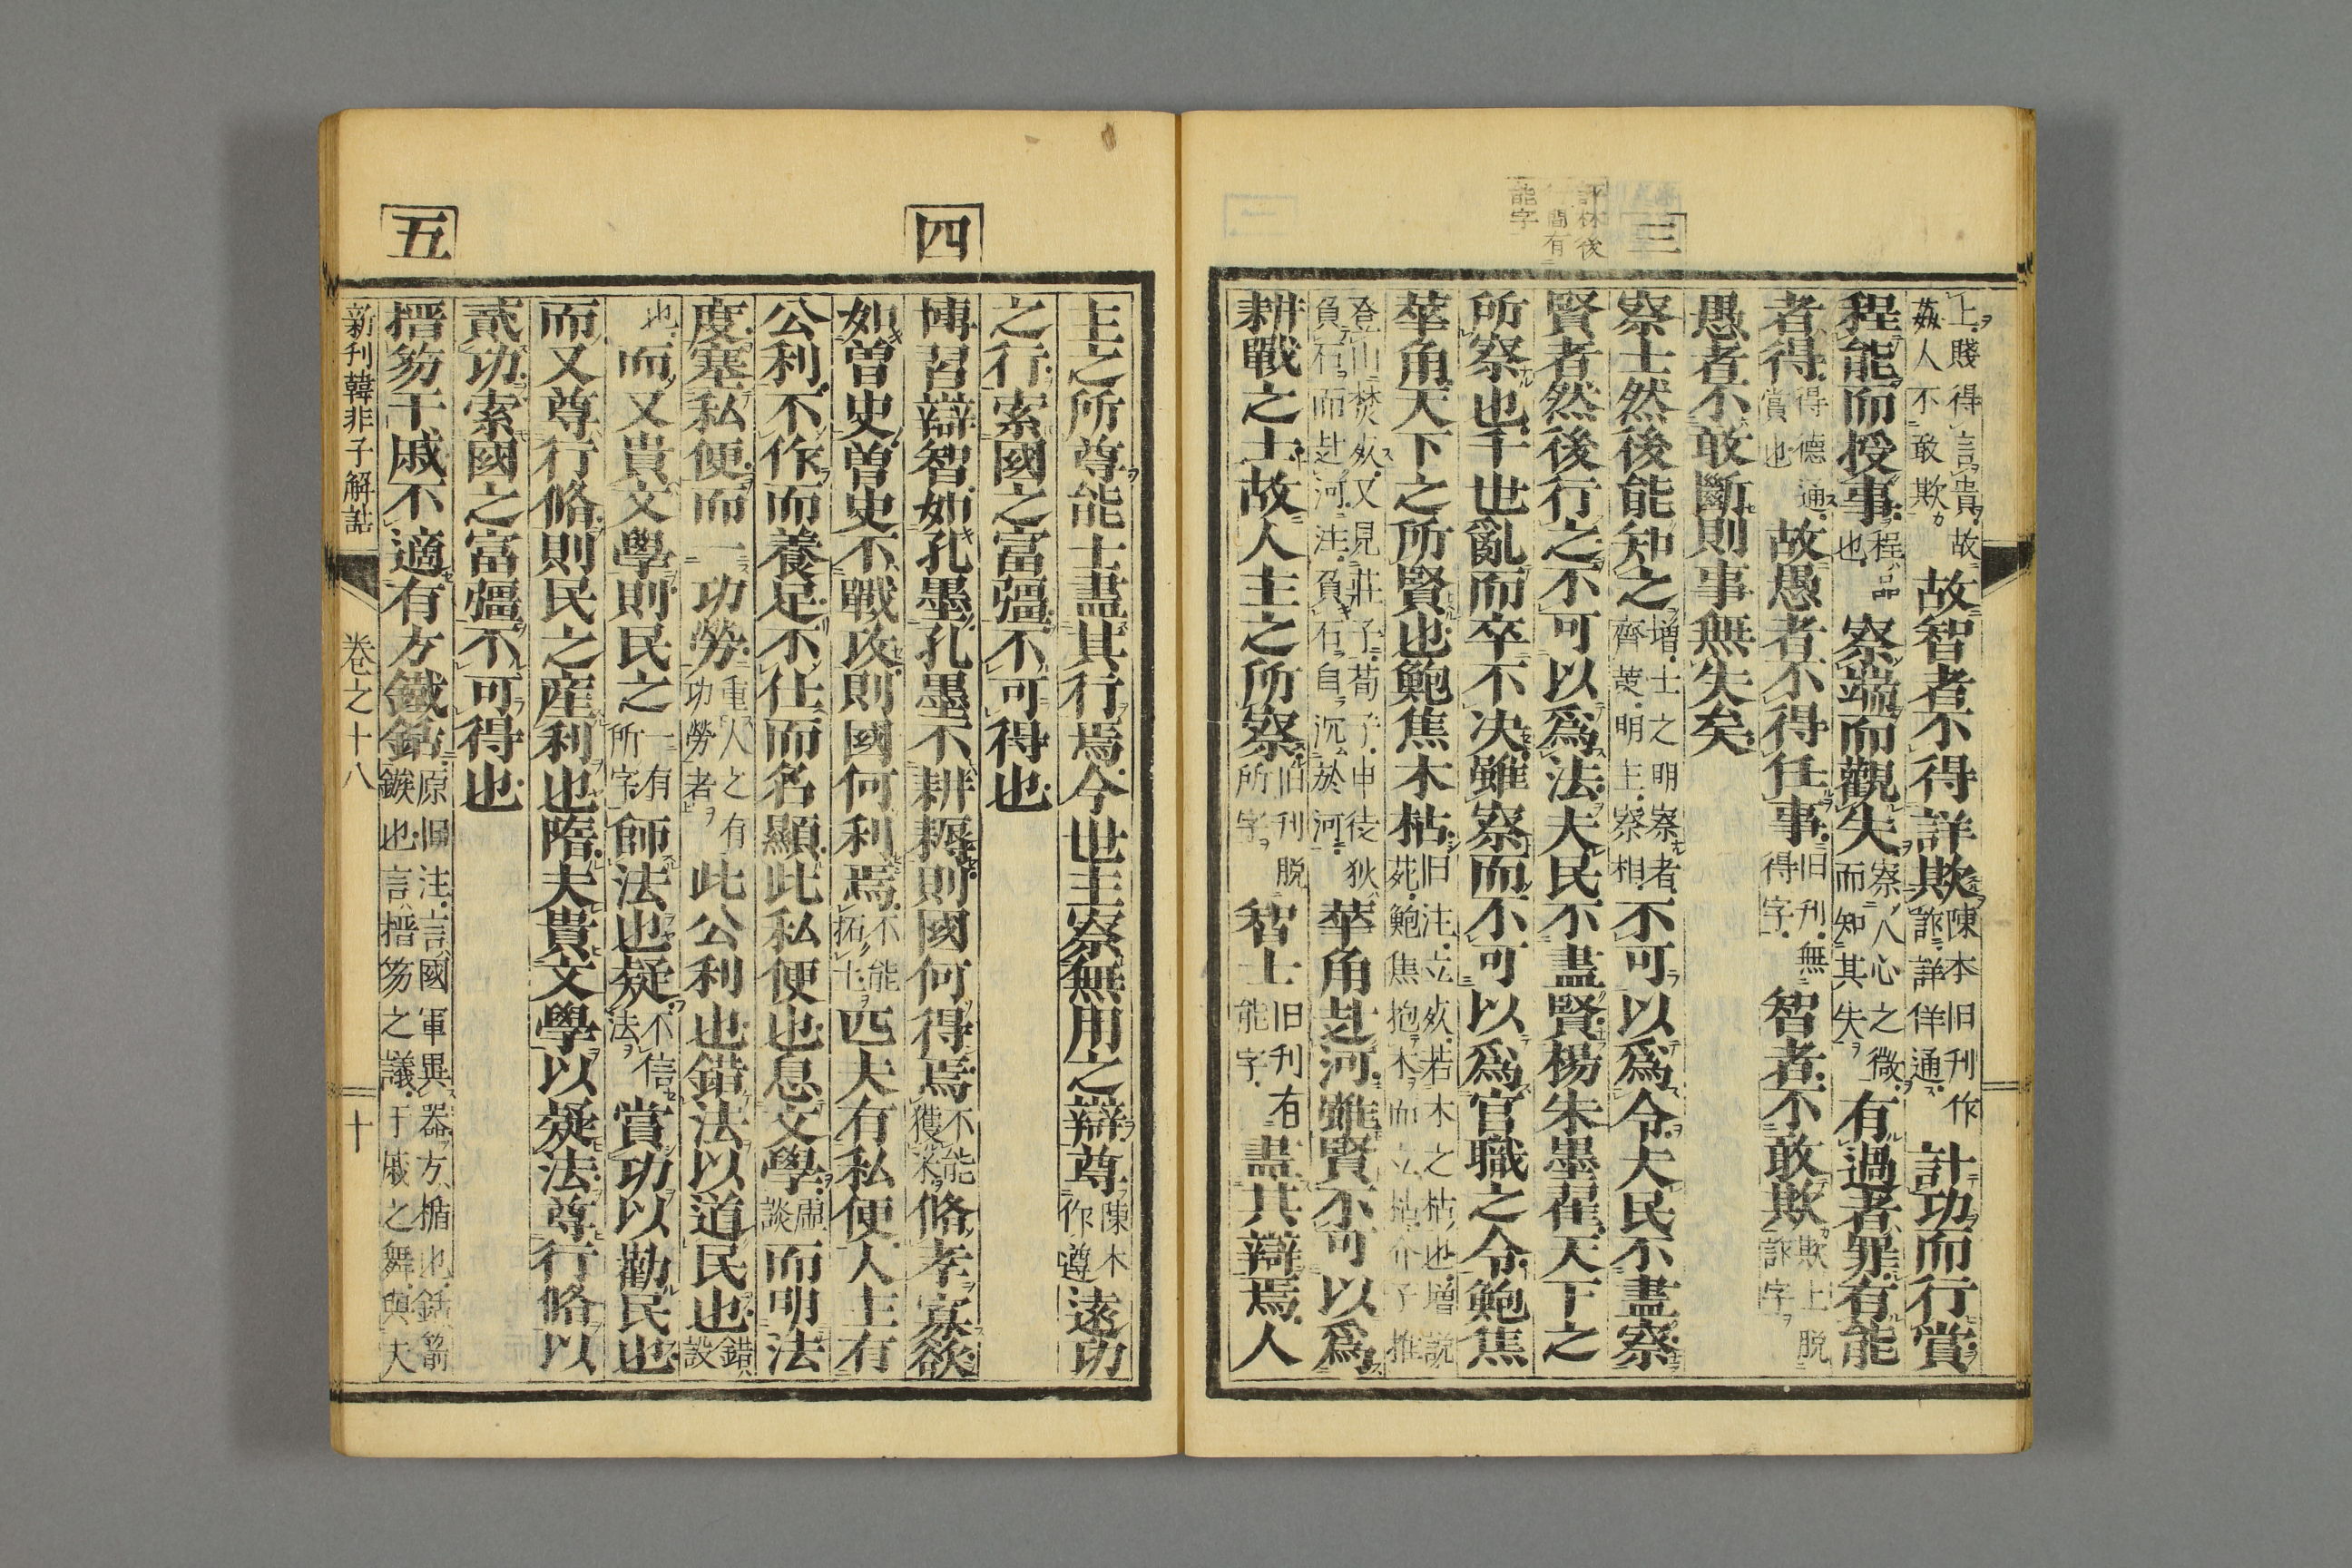 三
評林後
間有
能字
上賤得言貴故
姦人不敢欺
故智者不得詐欺
陳本旧刊作
詐詳佯通
計功而行賞
程能而授事
程品
也
察端而觀失
察人心之微
而知其失
有過者罪有能
者得
得德通
賞也
故愚者不得任事
旧刊無
得字
智者不敢欺
欺上脱
詐字
愚者不敢斷則事無失矣
察士然後能知之
增士之明察者
齊黄明主察相
不可以爲令夫民不盡察
賢者然後行之不可以爲法夫民不盡賢楊朱墨翟天下之
所察也干世亂而卒不決雖察而不可以爲官職之令鮑焦
華角天下之所賢也鮑焦木枯
旧注立死若木之枯也增説
苑鮑焦抱木而立枯介子推
登山焚死又見莊子荀子申徒狄
負石而赴河注負石自沉於河
華角赴河雖賢不可以爲
耕戰之士故人主之所察
旧刊脱
所字
智士
旧刊有
能字
盡其辯焉人
主之所尊能士盡其行焉今世主察無用之辯尊
陳本
作遵
遠功
之行索國之富彊不可得也
四
博習辯智如孔墨孔墨不耕耨則國何得焉
不能
獲米
脩孝寡欲
如曽史曽史不戰攻則國何利焉
不能
拓土
匹夫有私便人主有
公利不作而養足不仕而名顯此私便也息文學
談
而明法
度塞私便而一功勞
重人之有
功勞者
此公利也錯法以道民也
錯
設
也
而又貴文學則民之
一有
所字
師法也疑
不信
法
賞功以勸民也
而又尊行脩則民之産利也惰夫貴文學以疑法尊行脩以
貳功索國之富彊不可得也
五
搢笏干戚不適有方鐵銛
原旧注言國軍異器方楯也銛箭
鏃也言搢笏之議干戚之舞與夫
新刊韓非子解詁
卷之十八
十